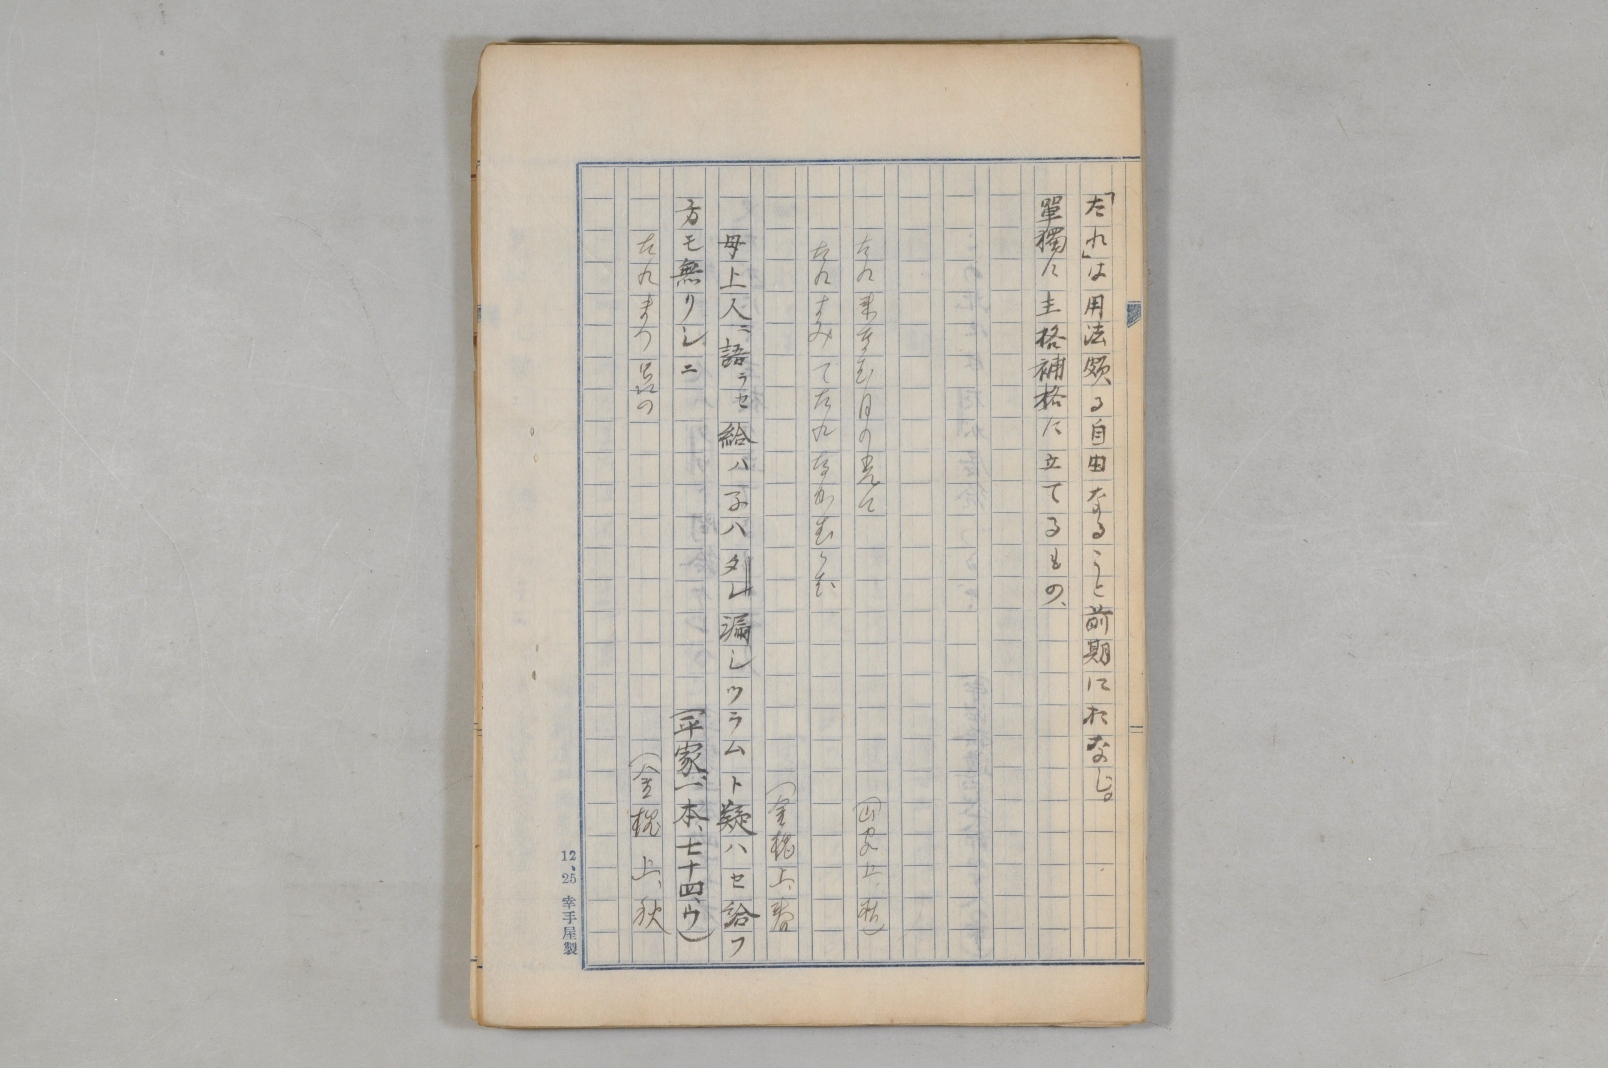 「たれ」は用法頗る自由なること前期におなじ。
單獨に主格補格に立てるもの、
たれ来なむ月の光に
(山家上、秋)
たれすみてたれながむらむ
(金槐上、春)
母上人ニ語ラセ給ハネハタレ漏シツラムト疑ハセ給フ
方モ無リしニ
(平家、一本、七十四、ウ)
たれまつ
(金槐上、秋)
12、25 幸手屋製